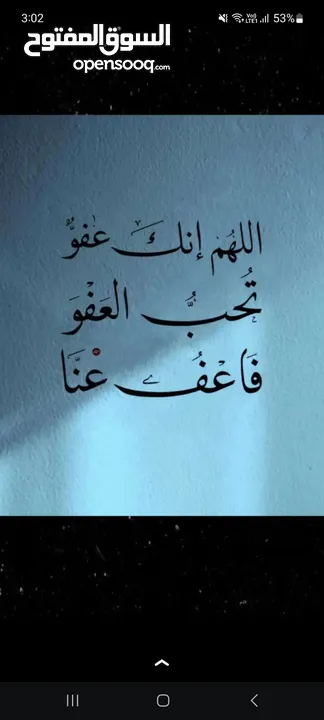 3:02
53%
السوق المفتوح
opensooq.com
اللهم إنك عفوٌّ
تُحبُّ العَفْوَ
فَاعْفُ عْنَّا